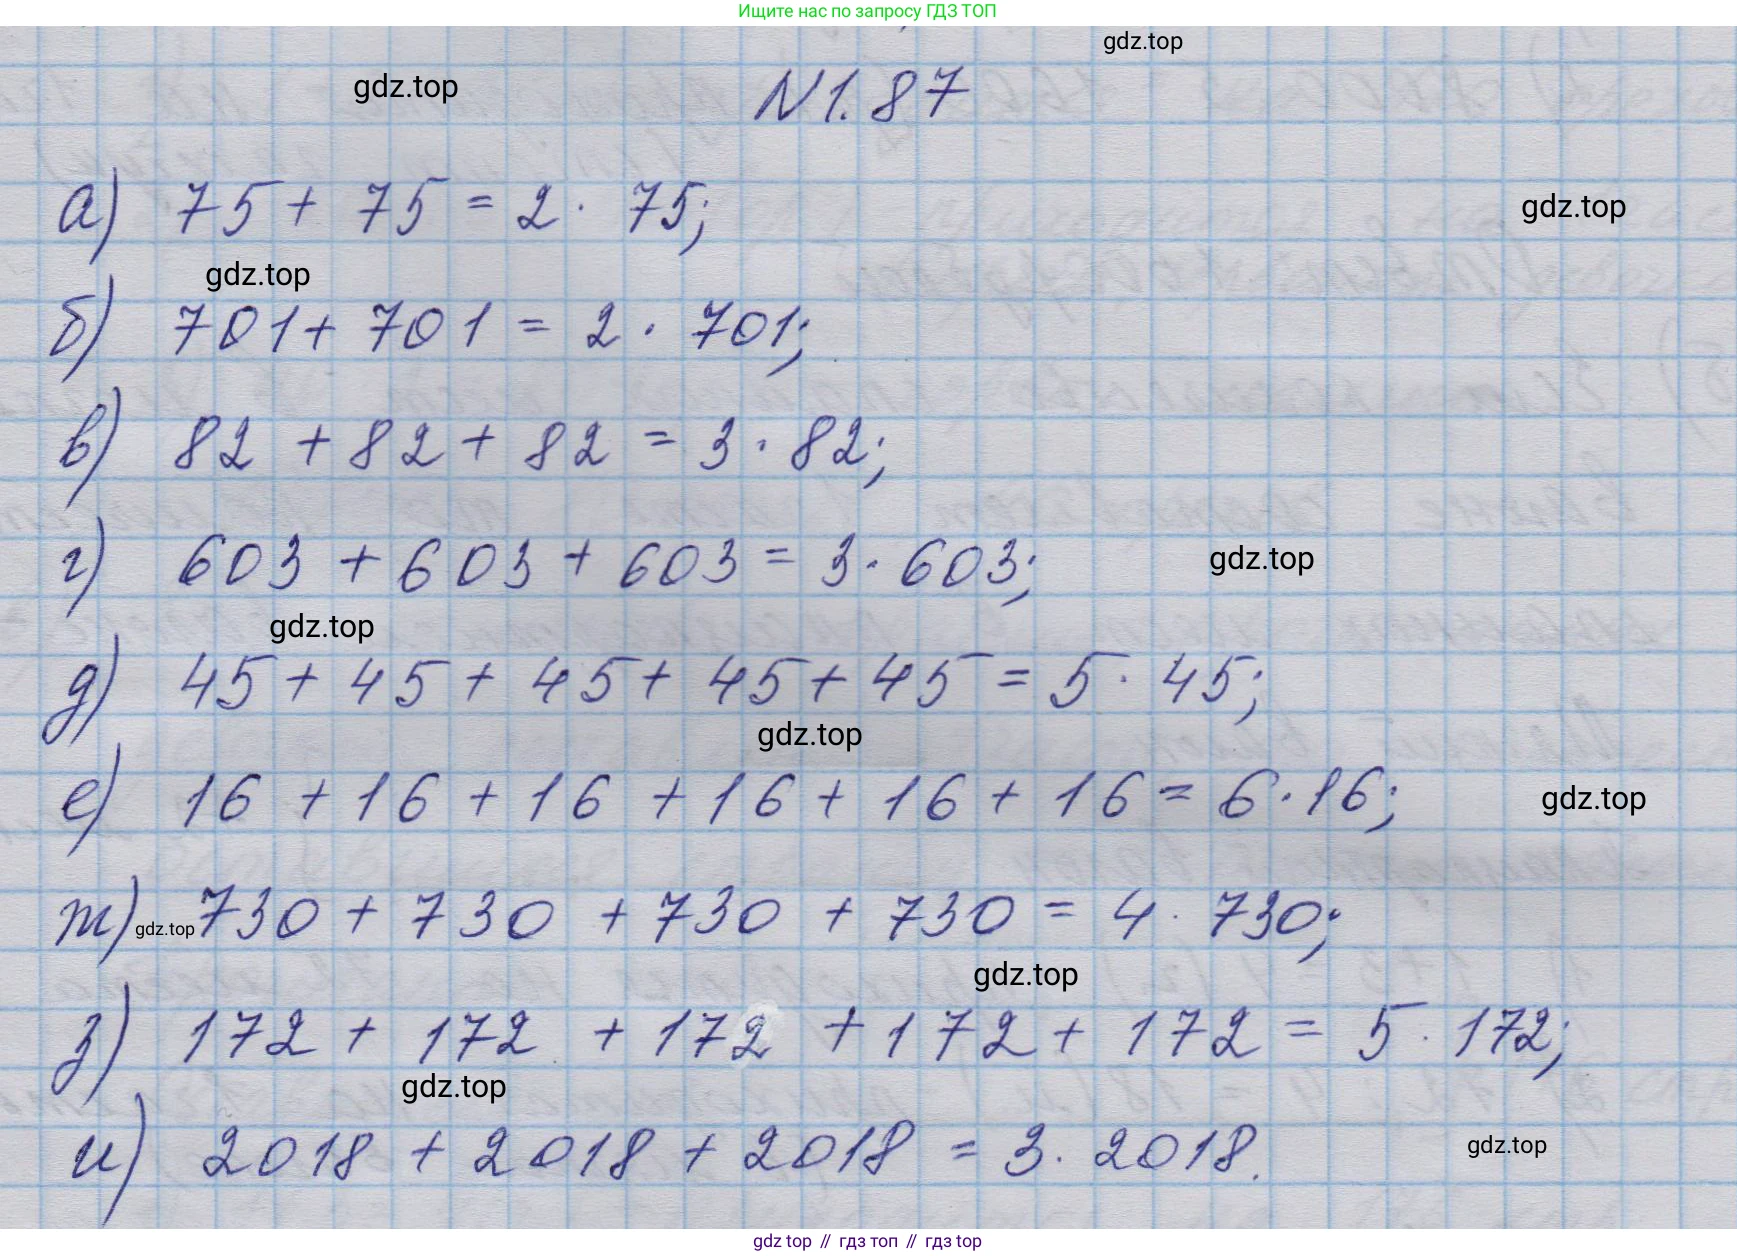 Ищите нас по запросу ГДЗ ТОП
gdz.top
gdz.top
N1.87
а) 75 + 75 = 2 · 75;
gdz.top
gdz.top
б) 701 + 701 = 2 · 701;
в) 82 + 82 + 82 = 3 · 82;
г) 603 + 603 + 603 = 3 · 603;
gdz.top
gdz.top
д) 45 + 45 + 45 + 45 + 45 = 5 · 45;
gdz.top
е) 16 + 16 + 16 + 16 + 16 + 16 = 6 · 16;
gdz.top
ж) 730 + 730 + 730 + 730 = 4 · 730;
gdz.top
gdz.top
з) 172 + 172 + 172 + 172 + 172 = 5 · 172;
gdz.top
и) 2018 + 2018 + 2018 = 3 · 2018.
gdz.top
gdz top // гдз топ // гдз top